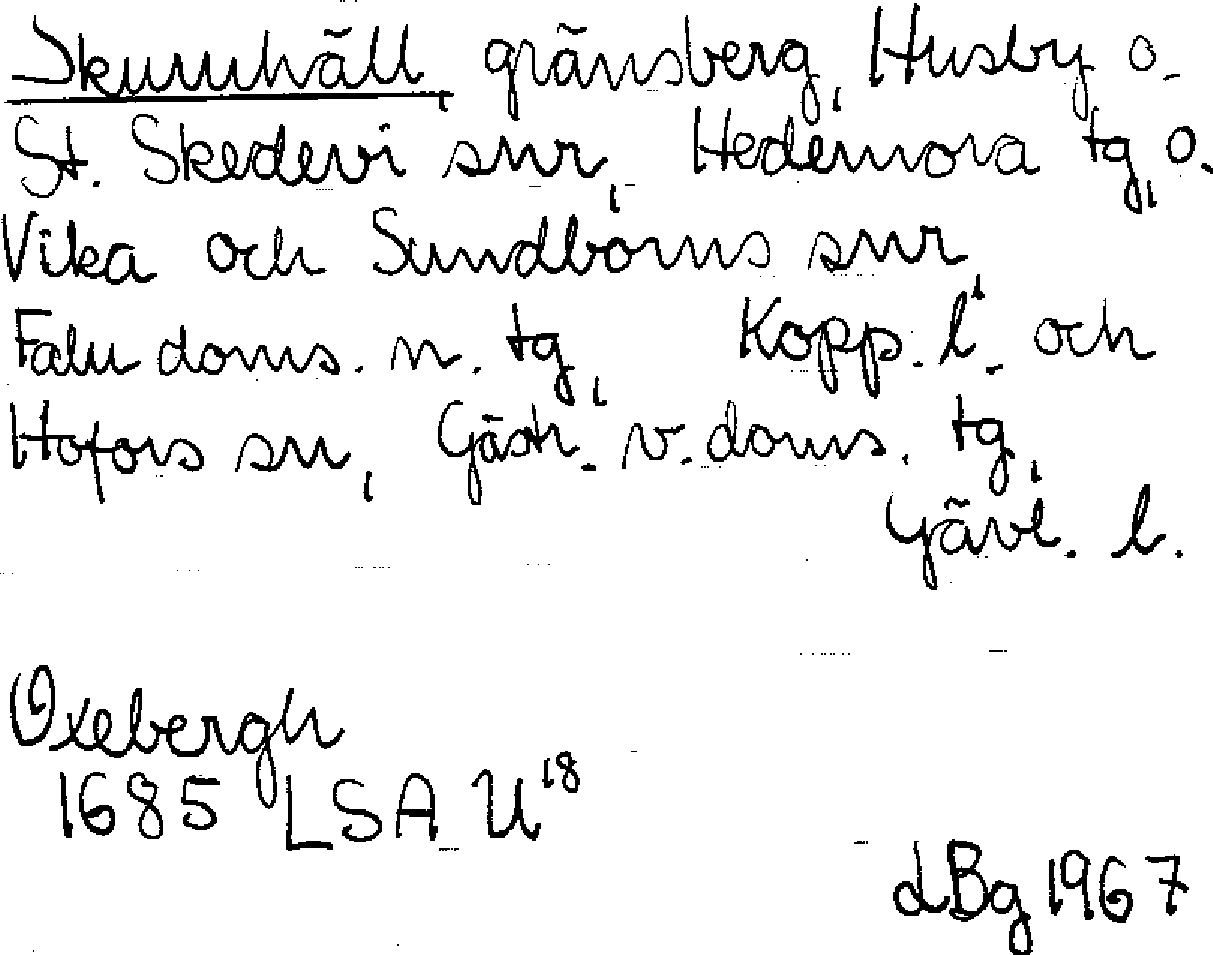 Skumhäll, gränsberg, Husby o.
St. Skedevi snr, Hedemora tg, o.
Vika och Sundborns snr,
Falu doms. n. tg, Kopp. l. och
Hofors sn, Gästr. v. doms. tg,
Gävl. l.
Oxebergh
1685 LSA U¹⁸
LBg 1967